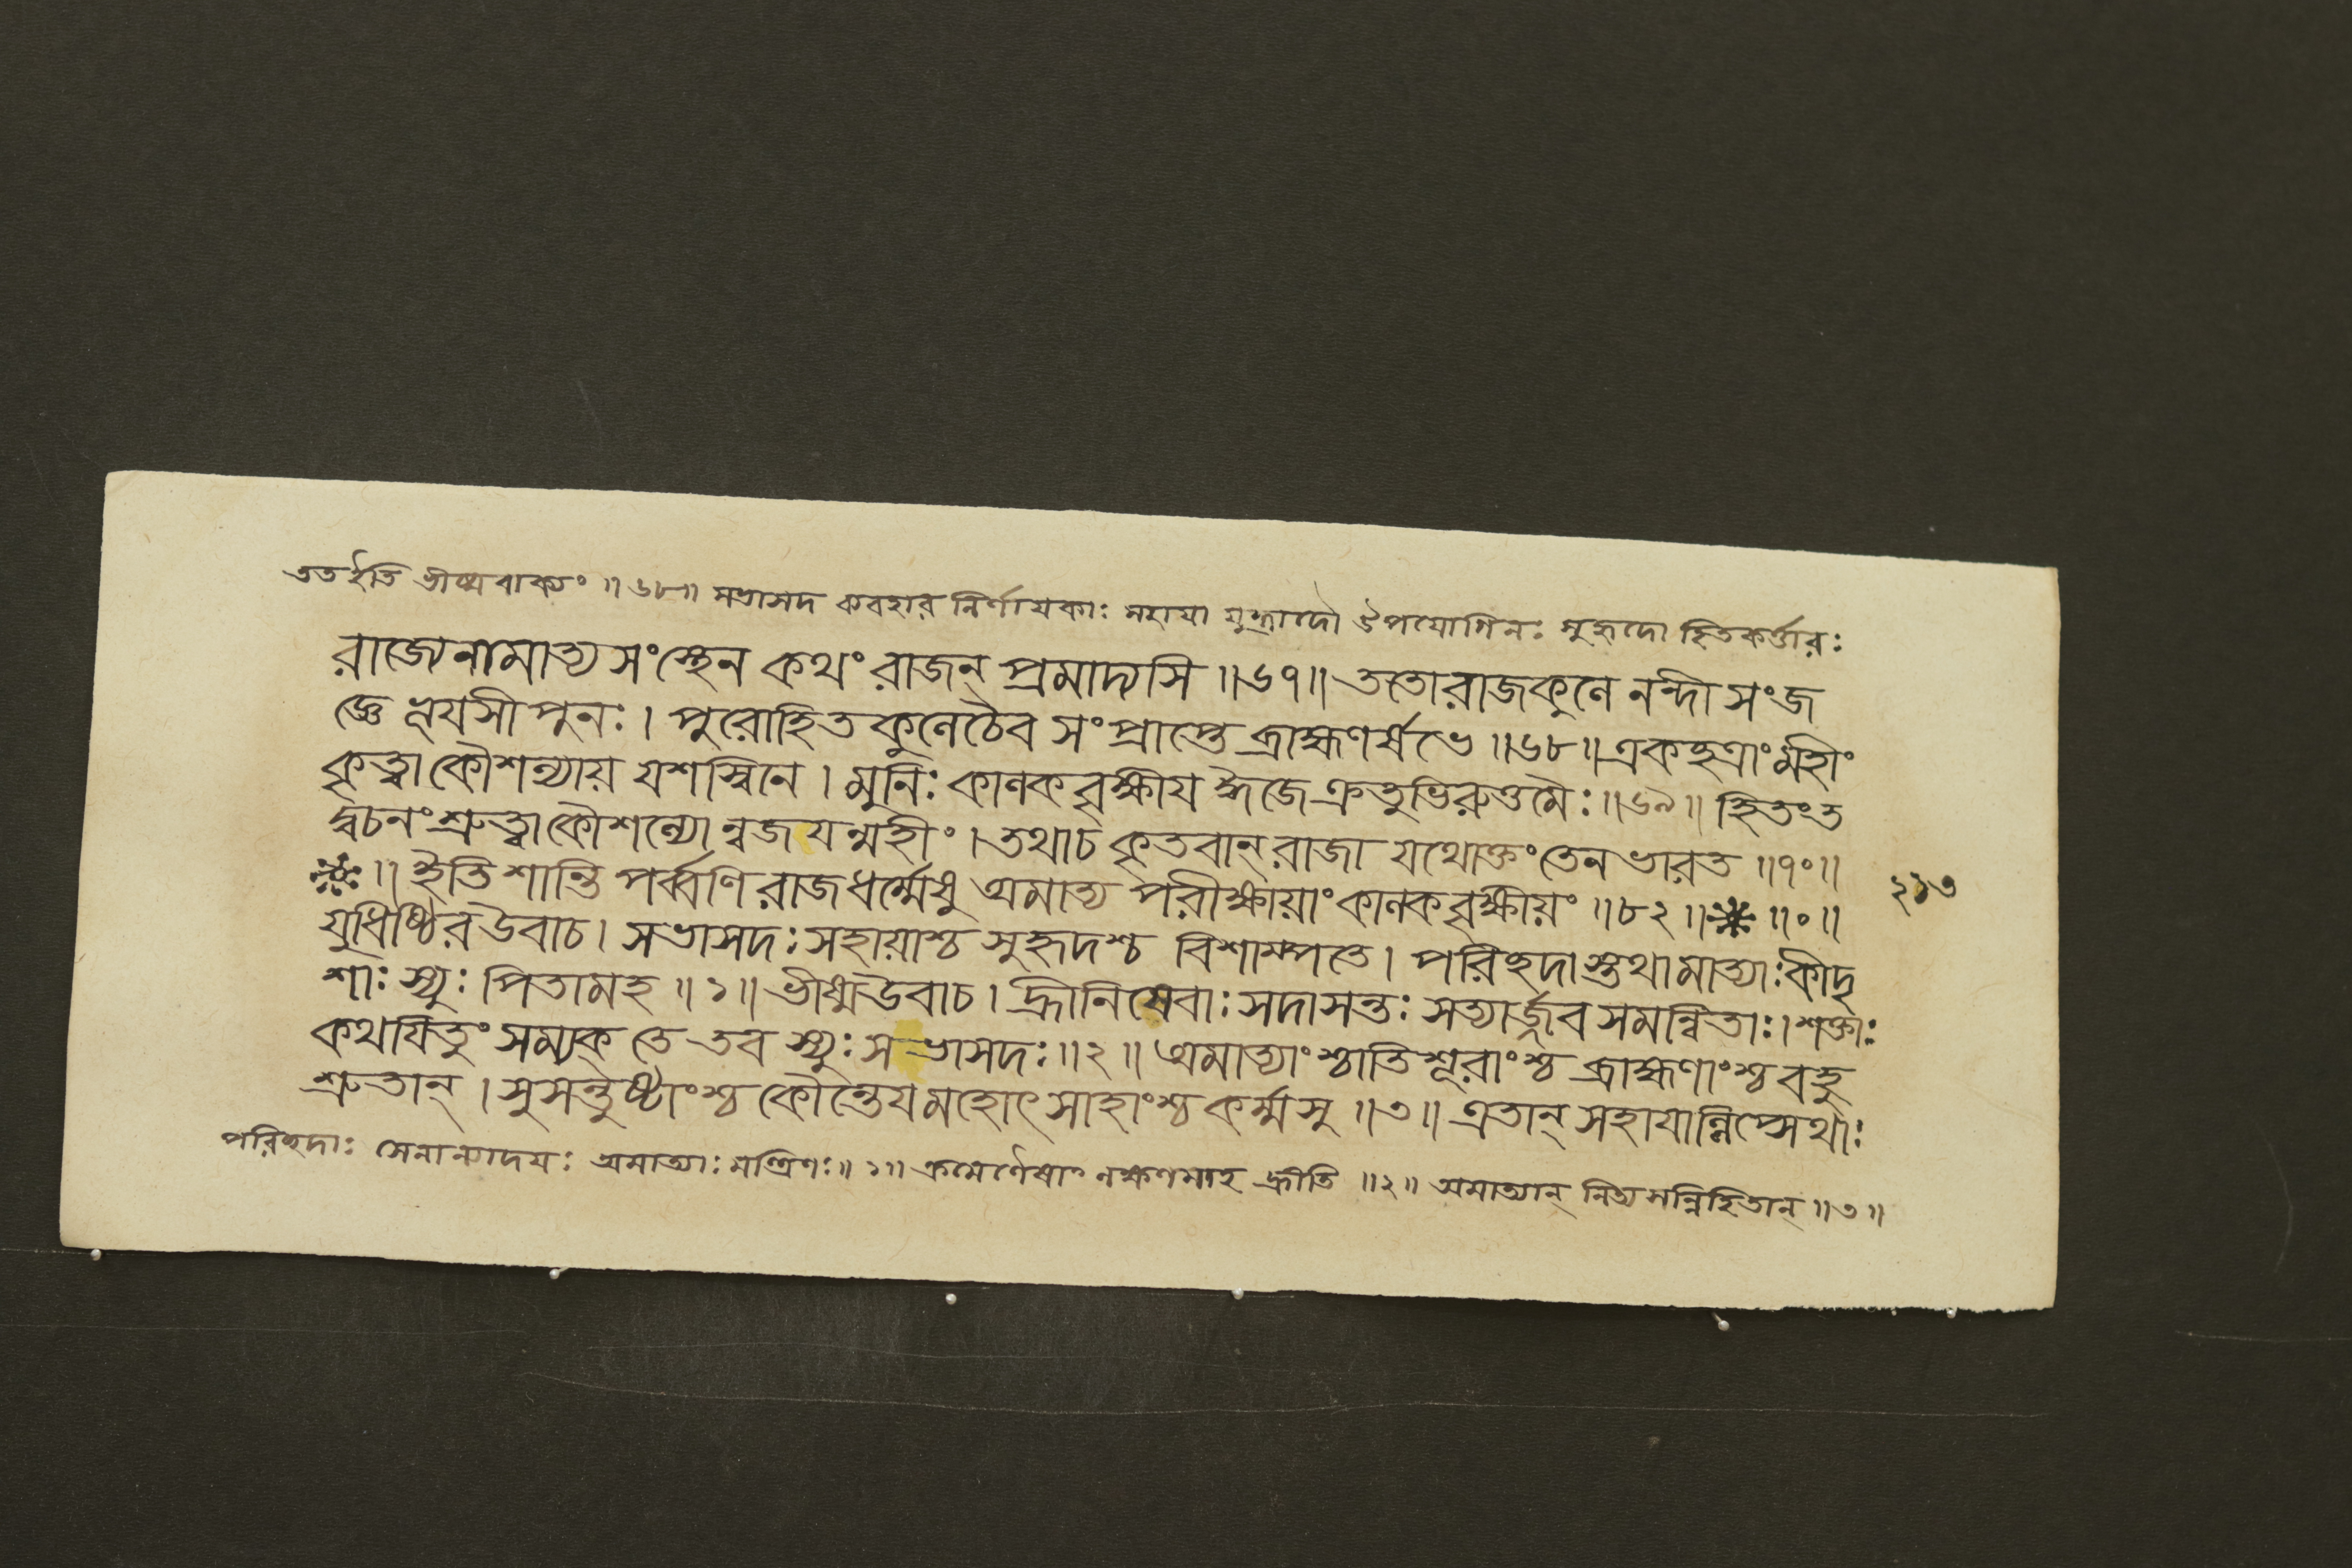 তত ইতি ভীষ্মবাক্যং ॥৬৮॥ সভাসদ ব্যবহার নির্ণায়কাঃ সহায়া যুদ্ধাদৌ উপযোগিনঃ সুহৃদো হিতকর্ত্তারঃ
রাজ্যেনামাত্যসংস্থেন কথং রাজন্ প্রমাদ্যসি ॥৬৭॥ ততোরাজকুলে নান্দী সংজ
জ্ঞে ভূয়সীপুনঃ। পুরোহিতকুলেচৈব সংপ্রাপ্তে ব্রাহ্মণর্ষভে ॥৬৮॥ একছত্রাং মহীং
কৃত্বা কৌশল্যায় যশস্বিনে। মুনিঃ কালকবৃক্ষীয় ঈজে ক্রতুভিরুত্তমৈঃ ॥৬৯॥ হিতংত
দ্বচনং শ্রুত্বা কৌশল্যোন্বজয়ন্মহীং। তথাচ কৃতবান্ রাজা যথোক্তংতেন ভারত ॥৭০॥
॥ ইতি শান্তিপর্ব্বণি রাজধর্ম্মেষু অমাত্য পরীক্ষায়াং কালকবৃক্ষীয়ং ॥৮২॥ ॥০॥
২১৩
যুধিষ্ঠিরউবাচ। সভাসদঃ সহায়াশ্চ সুহৃদশ্চ বিশাম্পতে। পরিছদাস্তথামাত্যাঃকীদৃ
শাঃ স্যুঃ পিতামহ ॥১॥ ভীষ্মউবাচ। হ্রীনিষেবাঃ সদাসন্তঃ সত্যার্জ্জব সমন্বিতাঃ। শক্তাঃ
কথয়িতুং সম্যক্ তে তব স্যুঃ সভাসদঃ ॥২॥ অমাত্যাংশ্চাতিশূরাংশ্চ ব্রাহ্মণাংশ্চ বহু
শ্রুতান্। সুসন্তুষ্টাংশ্চ কৌন্তেয়মহোৎসাহাংশ্চ কর্ম্মসু ॥৩॥ এতান্ সহায়ান্লিপ্সেথাঃ
পরিছদাঃ সেনান্যাদয়ঃ অমাত্যাঃ মন্ত্রিণঃ॥১॥ ক্রমেণৈষাং লক্ষণমাহ হ্রীতি ॥২॥ অমাত্যান্ নিত্যসন্নিহিতান্ ॥৩॥